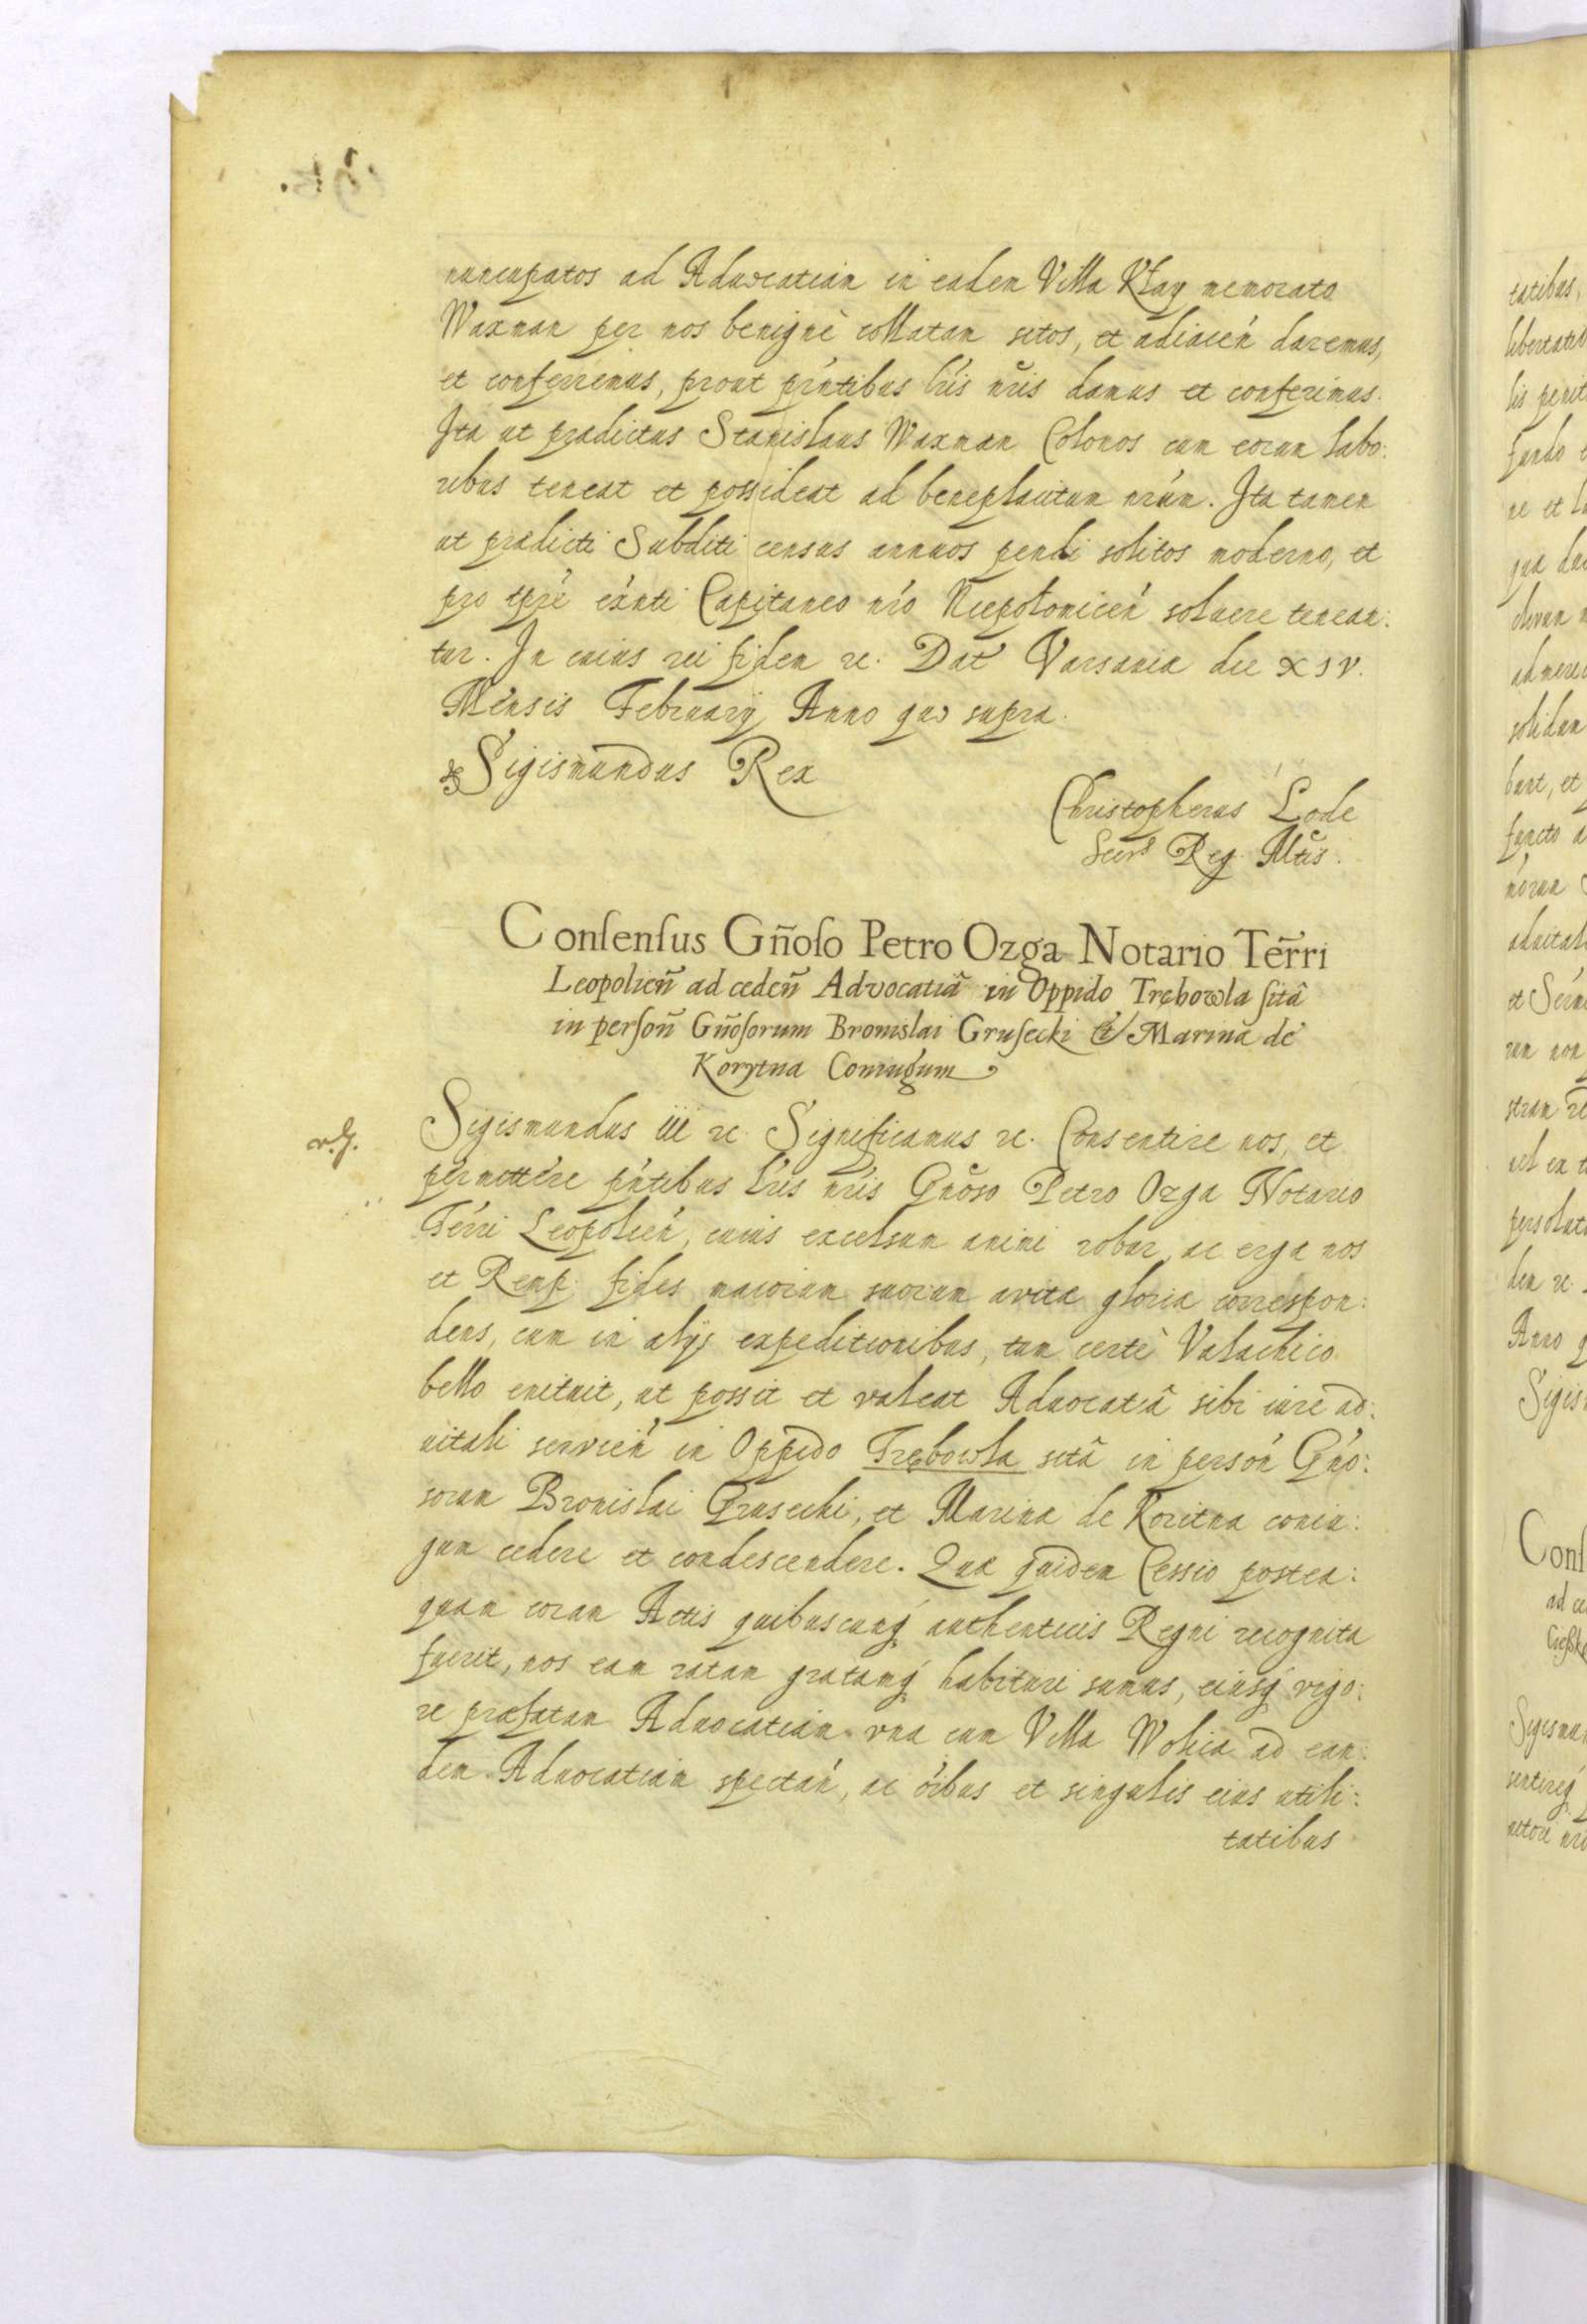 nuncupatos ad Aduocatiam in eadem Villa Kłay memorato
Waxman per nos benignè collatam sitos, et adiacen̄ daremus,
et conferremus, prout pn̄tibus lr̄is nr̄is damus et conferimus.
Ita ut prædictus Stanislaus Waxman Colonos cum eorum labo:
ribus teneat et possideat ad beneplacitum nr̄um. Ita tamen
ut prædicti Subditi census annuos pendi solitos moderno, et
pro tpr̄e exn̄ti Capitaneo nr̄o Niepołomicen̄ soluere tenean:
tur. In cuius rei fidem ꝛc. Dat Varsauiæ die XIV.
Mensis February Anno quo supra.
Sigismundus Rex
Christopherus Lode
Secrs Reg. Mt̄is.
Consensus Gn̄oso Petro Ozga Notario Ter̄ri
Leopolien̄ ad ceden̄ Advocatiā in Oppido Trębowla sitā
in person̄ Gn̄osorum Bronislai Grusecki & Marinæ de
Korytna Coniugum
Sigismundus iii ꝛc. Significamus ꝛc. Consentire nos, et
permittere pn̄tibus lr̄is nr̄is Gn̄oso Petro Ozga Notario
Ter̄ri Leopolien̄, cuius excelsum animi robur, ac erga nos
et Remp. fides maiorum suorum avitæ gloriæ correspon:
dens, cum in alijs expeditionibus, tum certè Valachico
bello enituit, ut possit et valeat Aduocatiā sibi iure ad:
uitali servien̄ in Oppido Trębowla sitā in person̄ Gn̄o:
sorum Bronislai Grusecki, et Marinæ de Koritna coniu:
gum cedere et condescendere. Quæ quidem Cessio postea:
quam coram Actis quibuscunq́ authenticis Regni recognita
fuerit, nos eam ratam gratamq́ habituri sumus, eiusq́ vigo:
re præfatam Aduocatiam vna cum Villa Wolica ad ean:
dem Aduocatiam spectan̄, ac oībus et singulis eius utili:
tatibus